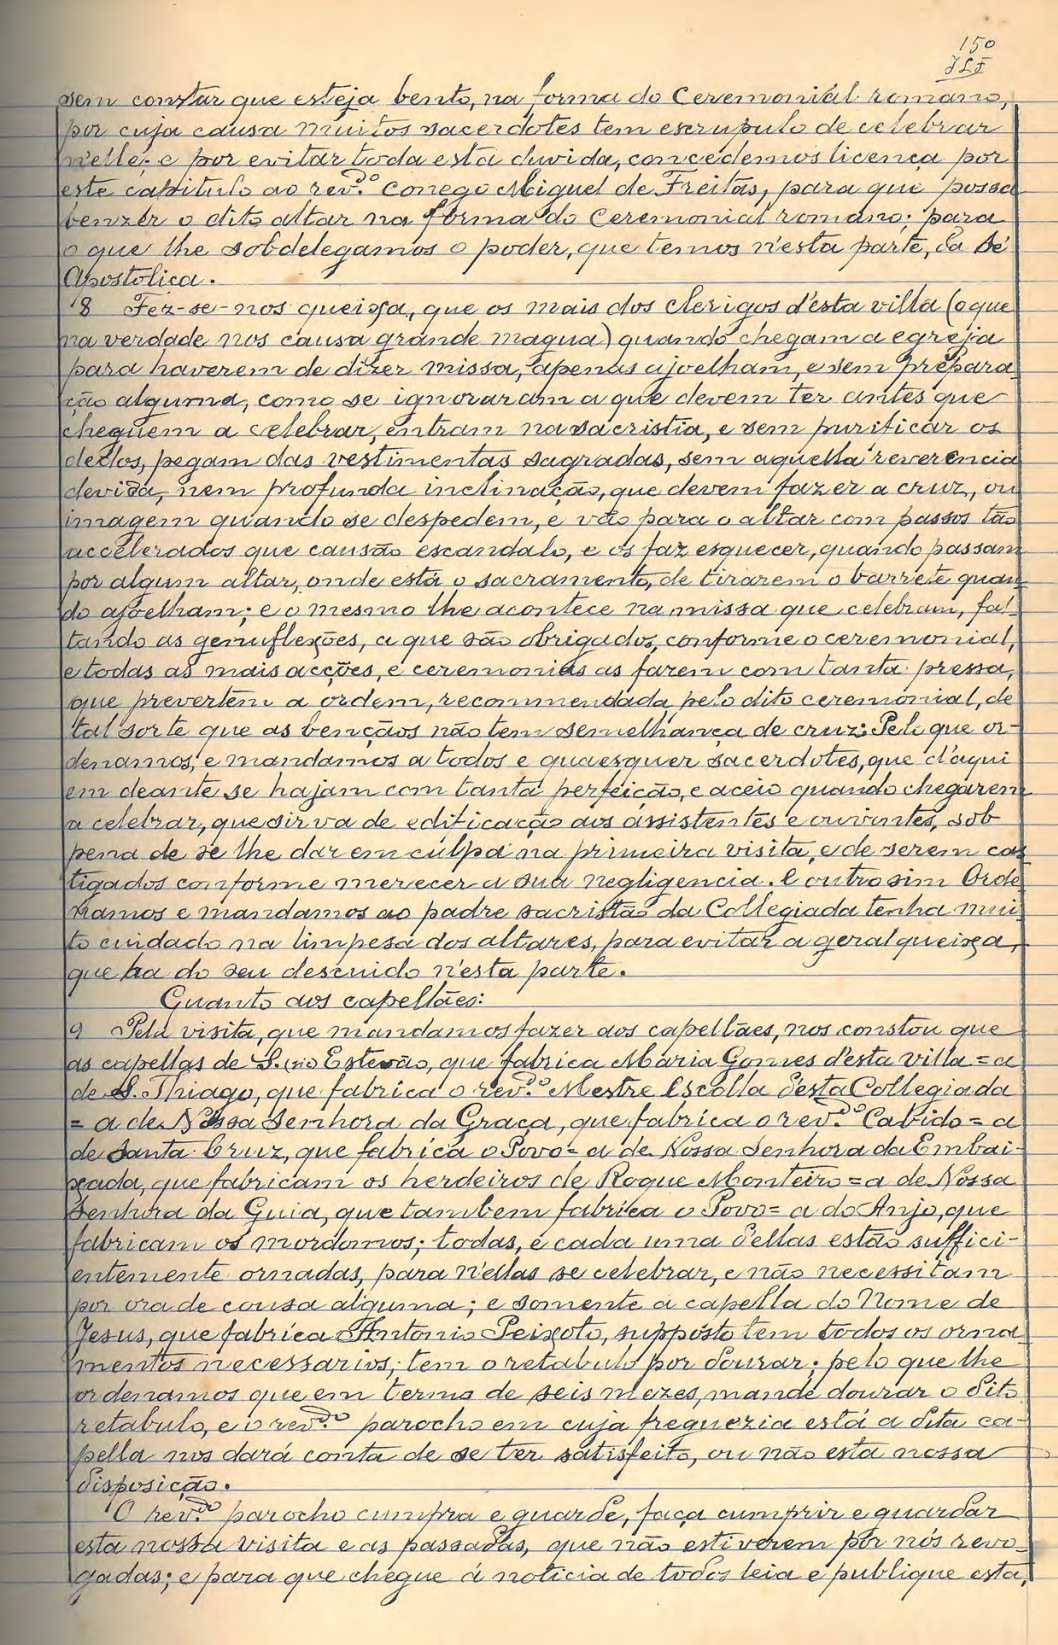 150
JLF
sem constar que esteja bento, na forma do Ceremonial romano,
por cuja causa muitos sacerdotes tem escrupulo de celebrar
n'elle; e por evitar toda esta duvida, concedemos licença por
este capitulo ao rev.do conego Miguel de Freitas, para que possa
benzer o dito altar na forma do Ceremonial romano; para
o que lhe sobdelegamos o poder, que temos n'esta parte, da Sé
Apostolica.
8 Fez-se-nos queixa, que os mais dos clerigos d'esta villa (o que
na verdade nos causa grande magua) quando chegam a egreja
para haverem de dizer missa, apenas ajoelham, e sem prepara-
ção alguma, como se ignoraram a que devem ter antes que
cheguem a celebrar, entram na sacristia, e sem purificar os
dedos, pegam das vestimentas sagradas, sem aquella reverencia
devida, nem profunda inclinação, que devem fazer a cruz, ou
imagem quando se despedem, e vão para o altar com passos tão
accelerados que causão escandalo, e os faz esquecer, quando passam
por algum altar, onde está o sacramento, de tirarem o barrete quan-
do ajoelham; e o mesmo lhe acontece na missa que celebram, fal-
tando as genuflexões, a que são obrigados, conforme o ceremonial,
e todas as mais acções, e ceremonias as fazem com tanta pressa,
que prevertem a ordem, recommendada, pelo dito ceremonial, de
tal sorte que as bençãos não tem semelhança de cruz: Pelo que or-
denamos, e mandamos a todos e quaesquer sacerdotes, que d'aqui
em deante se hajam com tanta perfeição, e aceio quando chegarem
a celebrar, que sirva de edificação aos assistentes e ouvintes, sob
pena de se lhe dar em culpa na primeira visita, e de serem cas
tigados conforme merecer a sua negligencia. E outrosim Orde
namos e mandamos ao padre sacristão da Collegiada tenha mui
to cuidado na limpesa dos altares, para evitar a geral queixa,
que ha do seu descuido n'esta parte.
Quanto aos capellães:
9 Pela visita, que mandamos fazer aos capellães, nos constou que
as capellas de S. (sic) Estevão, que fabrica Maria Gomes d'esta villa = a
de S. Thiago, que fabrica o rev.do Mestre Escolla d'esta Collegiada
= a de Nossa Senhora da Graça, que fabrica o rev.do Cabido = a
de Santa Cruz, que fabrica o Povo = a de Nossa Senhora da Embai-
xada, que fabricam os herdeiros de Roque Monteiro = a de Nossa
Senhora da Guia, que tambem fabrica o Povo = a do Anjo, que
fabricam os mordomos; todas, e cada uma d'ellas estão suffici-
entemente ornadas, para n'ellas se celebrar, e não necessitam
por ora de cousa alguma; e somente a capella do Nome de
Jesus, que fabrica Antonio Peixoto, supposto tem todos os orna-
mentos necessarios, tem o retabulo por dourar; pelo que lhe
ordenamos que em termo de seis mezes, mande dourar o dito
retabulo, e o rev.do parocho em cuja freguezia está a dita ca-
pella nos dará conta de se ter satisfeito, ou não esta nossa
disposição.
O rev.do parocho cumpra e guarde, faça cumprir e guardar
esta nossa visita e as passadas, que não estiverem por nós revo-
gadas; e para que chegue á noticia de todos leia e publique esta,